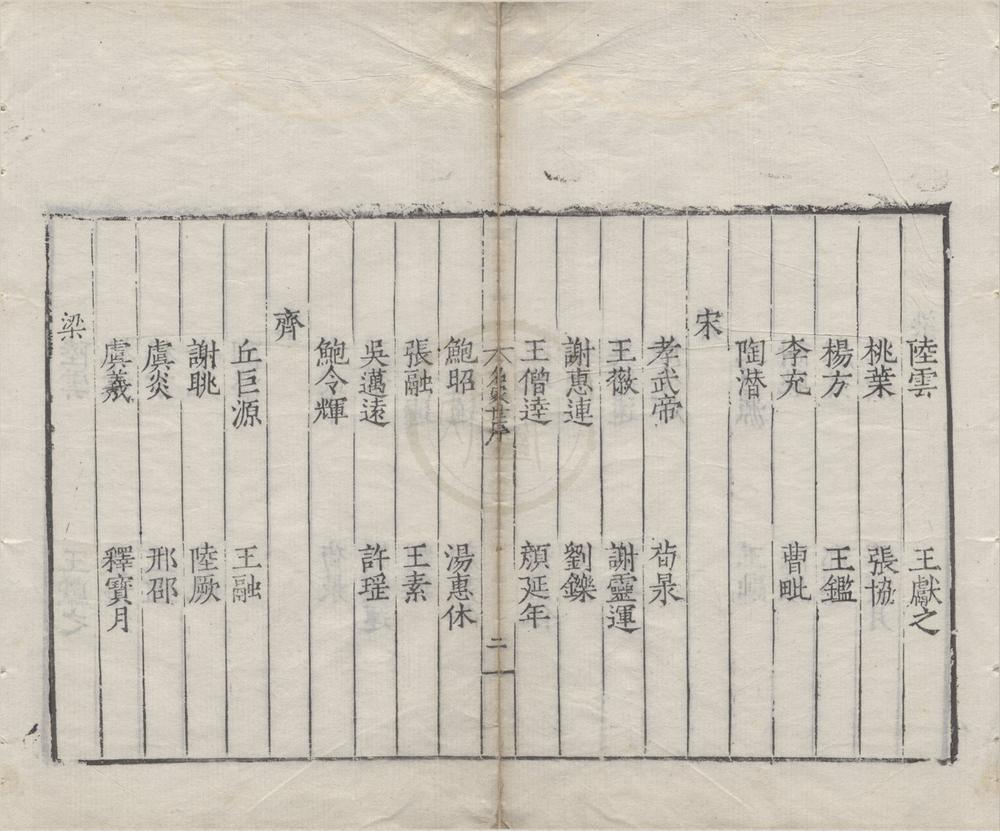 陸雲 王獻之
桃葉 張協
楊方 王鑑
李充 曹毗
陶潜
宋
孝武帝 荀昶
王微 謝靈運
謝惠連 劉鑠
王僧達 顔延年
二
鮑昭 湯惠休
張融 王素
吳邁遠 許瑶
鮑令輝
齊
丘巨源 王融
謝朓 陸厥
虞炎 邢邵
虞羲 釋寶月
梁